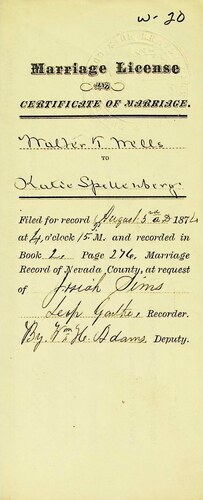 W-20
Marriage License
AND
CERTIFICATE OF MARRIAGE.
Walter T. Wells
TO
Katie Spellenberg
Filed for record August 3rd A.D. 187
at 4 o'clock 15 M. and recorded in
Book 2, Page 276, Marriage
Record of Nevada County, at request
of Josiah Sims
Recorder.
By Wm H. Adams Deputy.